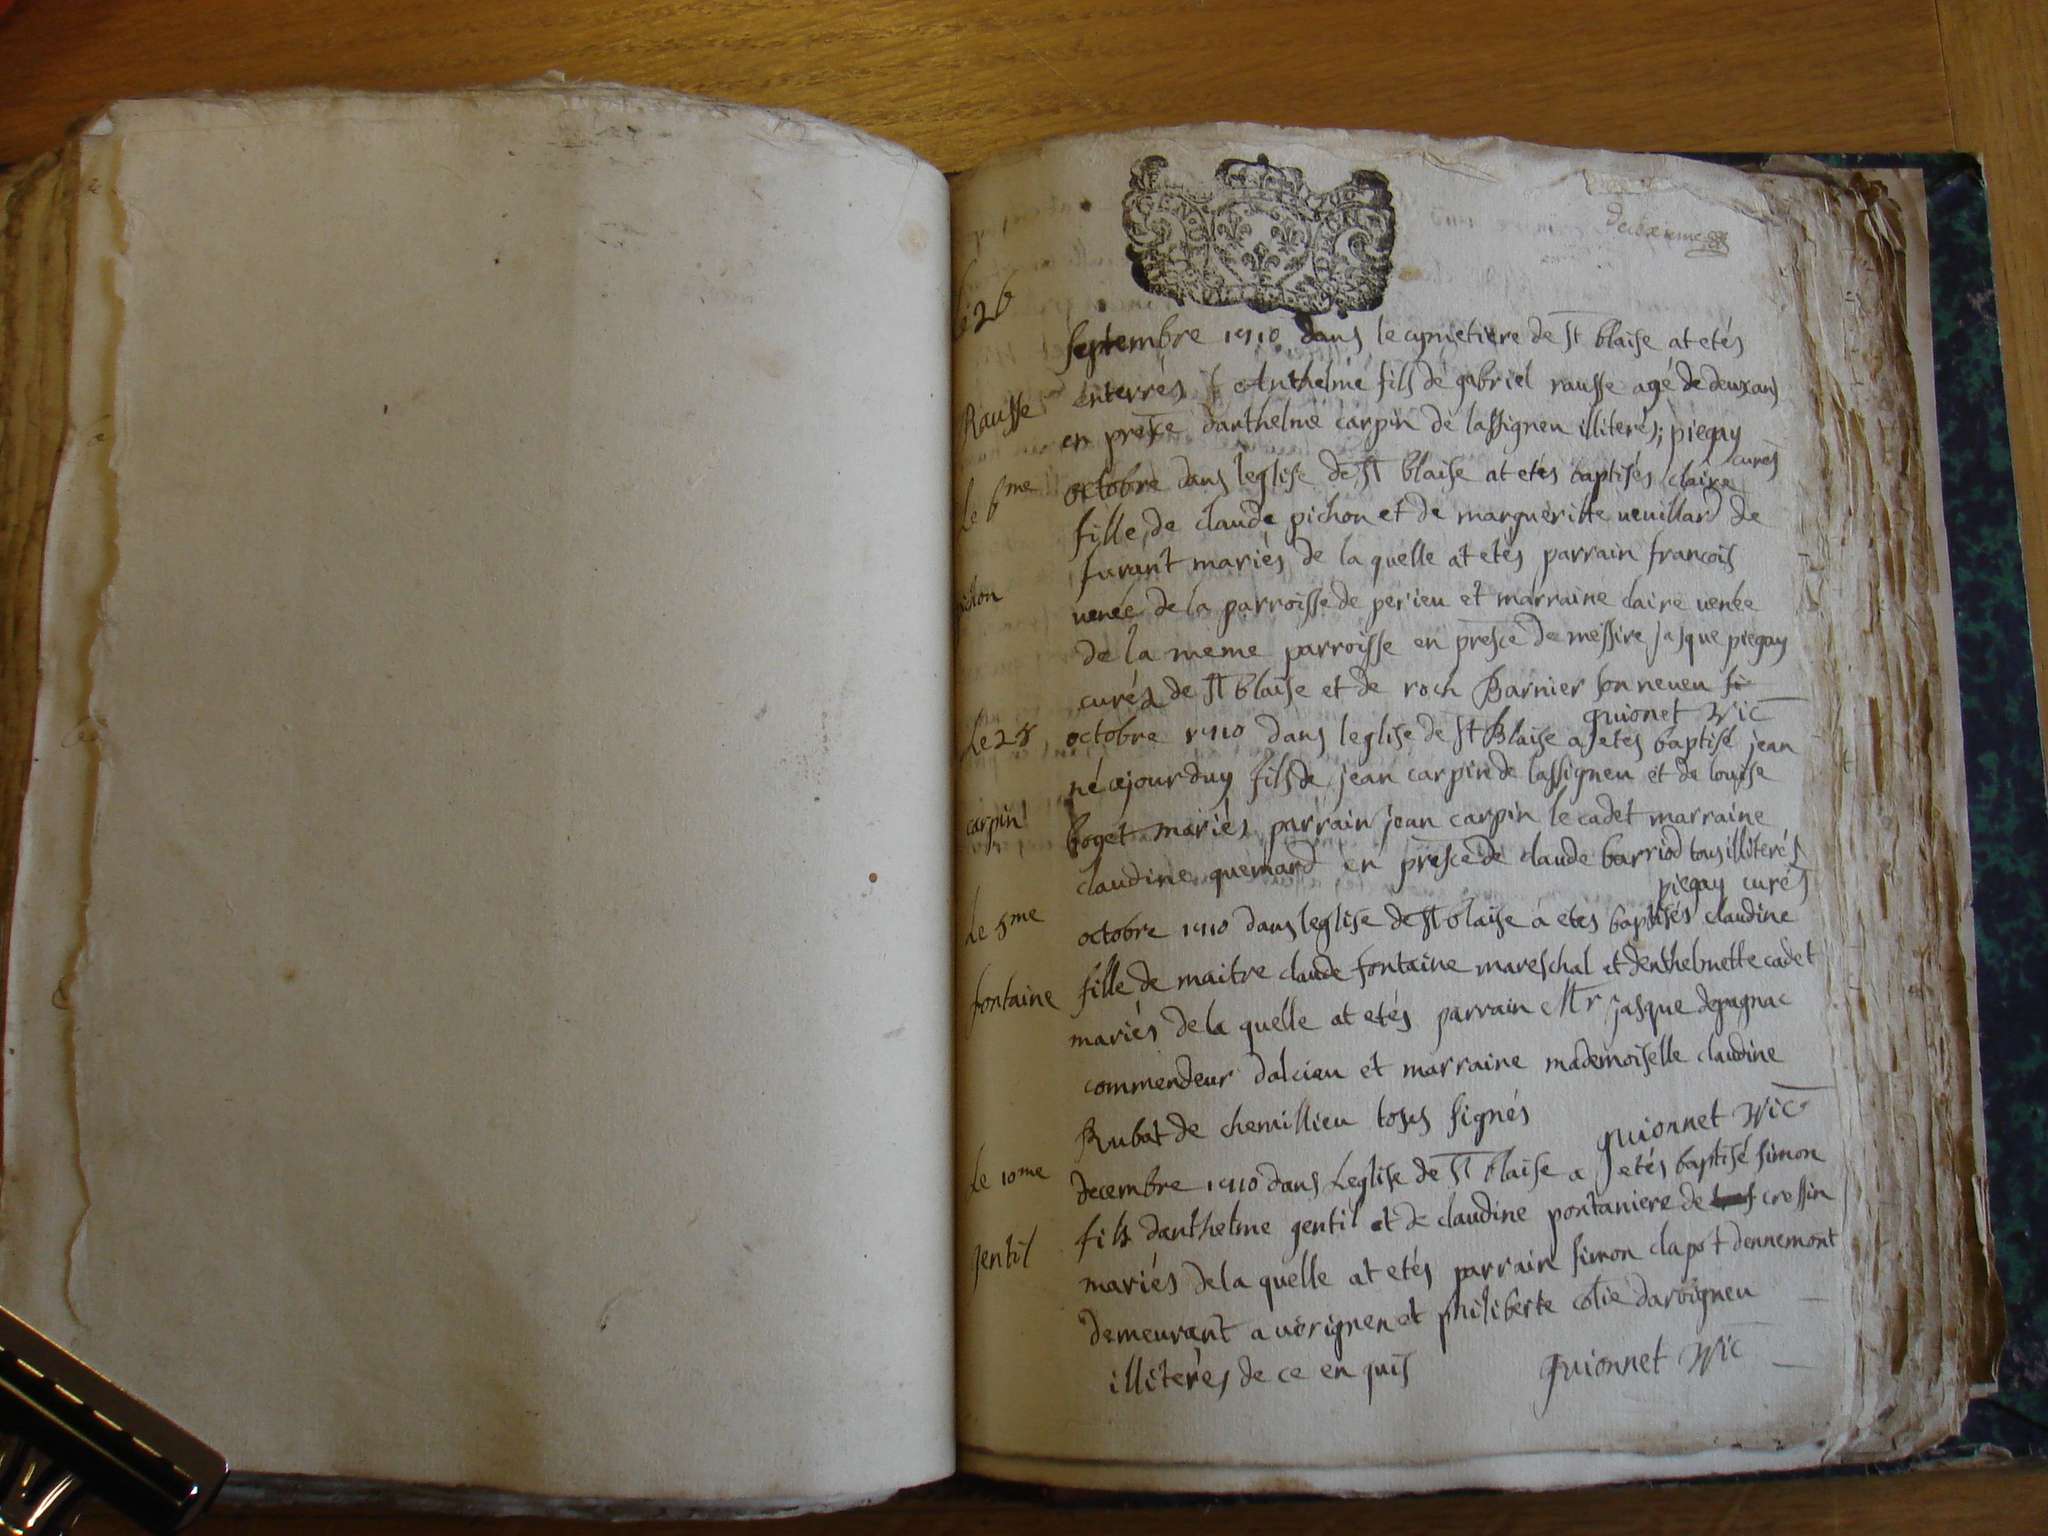 deuxieme
le 26
septembre 1710 dans le cymetiere de st blaise at etés
Rausse enterrés Anthelme fils de gabriel rausse agé de deux ans
en presce danthelme carpin de lassigneu illiterés; piegay
curés
le 6me octobre dans leglise de st blaise at etés baptisés claire
fille de claude pichon et de margueritte veuillard de
furant mariés de la quelle at etés parrain francois
pichon venée de la parroisse de perieu et marraine claire venée
de la meme parroisse en presce de messire jasque piegay
curés de st blaise et de roch Barnier son neveu
guionet vic
le 28 octobre 1710 dans leglise de st Blaise a etés baptisé jean
né cejourduy fils de jean carpin de lassigneu et de louise
carpin boget mariés parrain jean carpin le cadet marraine
claudine quemard en presce de claude barriod tous illiterés
piegay curés
le 8me octobre 1710 dans leglise de st blaise a etés baptisés claudine
fontaine fille de maitre claude fontaine mareschal et denthelmette cadet
mariés de la quelle at etés parrain Mr jasque depagnac
commendeur dalcieu et marraine mademoiselle claudine
Rubat de chemillieu tous signés
guionnet vic
le 10me decembre 1710 dans Leglise de st blaise a etés baptisé simon
gentil fils danthelme gentil et de claudine pontaniere de cressin
mariés de la quelle at etés parrain simon clapot dennemont
demeurant a vorignen et philiberte colie darvigneu
illiterés de ce enquis guionnet vic